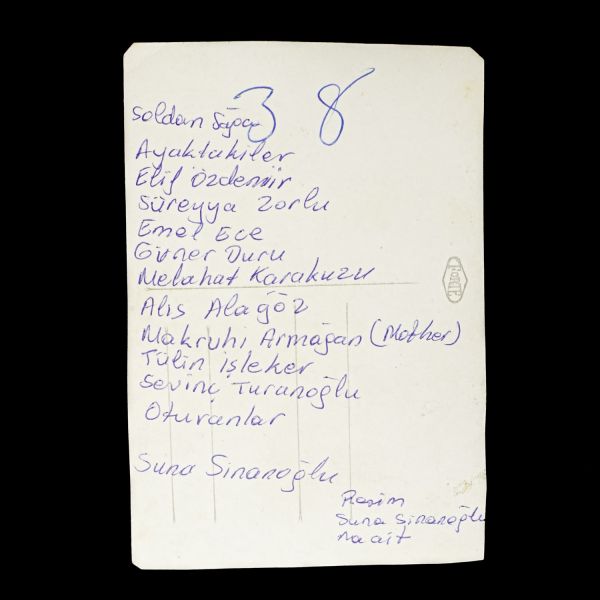 38
Soldan Sağa
Ayaktakiler
Elif Özdemir
Süreyya Zorlu
Emel Ece
Güner Duru
Melahat Karakuzu
Alis Alagöz
Makruhi Armağan (Mother)
Tülin İşleker
Sevinç Turanoğlu
Oturanlar
Suna Sinanoğlu
Resim
Suna Sinanoğlu
na ait